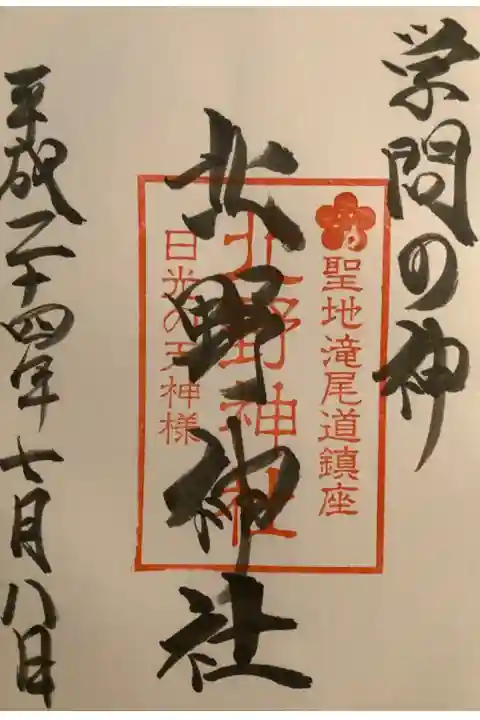 学問の神
聖地滝尾道鎮座
北野神社
北野神社
日光の天神様
平成二十四年七月八日